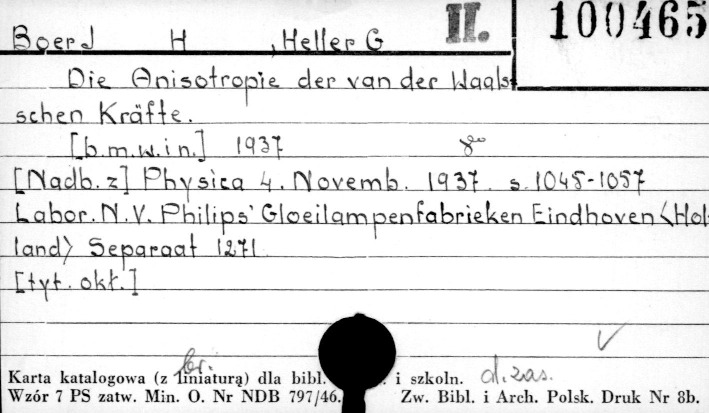 Boer J H , Heller G II. 100465
Die Anisotropie der van der Waals-
schen Kräfte.
[b.m.w.i n.] 1937 8°
[Nadb. z] Physica 4. Novemb. 1937. s. 1045-1057
Labor. N.V. Philips' Gloeilampenfabrieken Eindhoven <Hol-
land> Separaat 1271
[tyt. okł.]
br. d. zas.
Karta katalogowa (z liniaturą) dla bibl. i szkoln.
Wzór 7 PS zatw. Min. O. Nr NDB 797/46. Zw. Bibl. i Arch. Polsk. Druk Nr 8b.